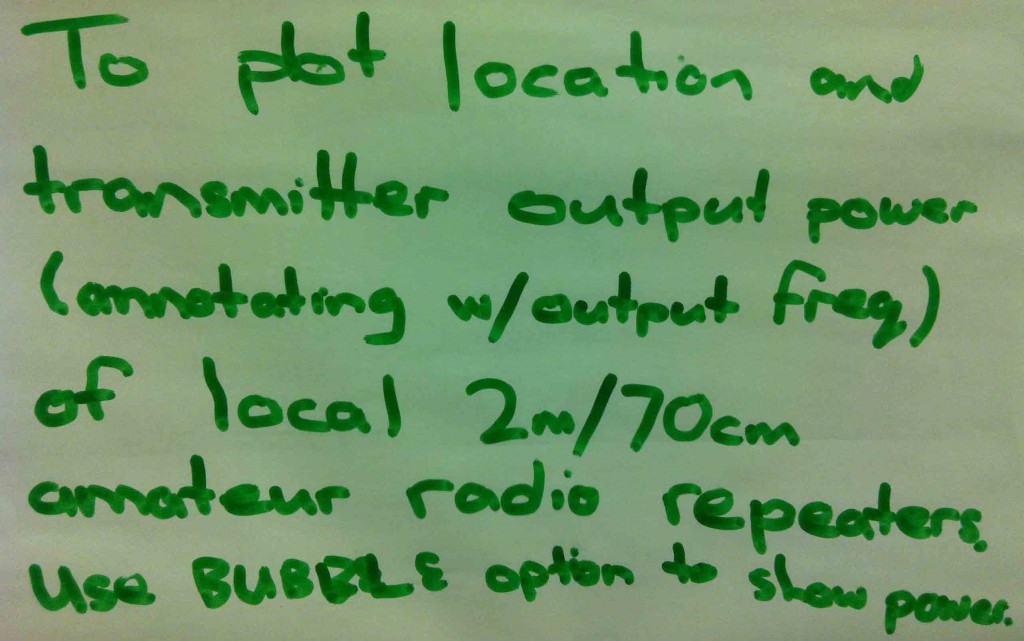 To plot location and
transmitter output power
(annotating w/output freq)
of local 2m/70cm
amateur radio repeaters.
Use BUBBLE option to show power.